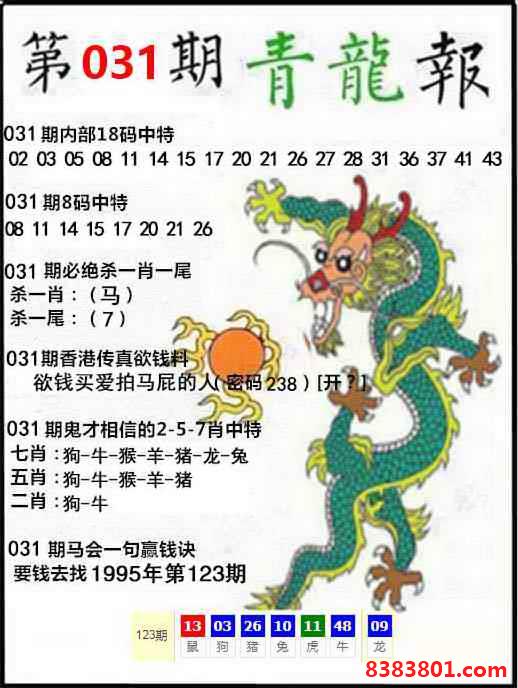 第031期青龍報
031期内部18码中特
02 03 05 08 11 14 15 17 20 21 26 27 28 31 36 37 41 43
031期8码中特
08 11 14 15 17 20 21 26
031 期必绝杀一肖一尾
杀一肖：（马）
杀一尾：（7）
031期香港传真欲钱料
欲钱买爱拍马屁的人(密码238)[开?]
031期鬼才相信的2-5-7肖中特
七肖：狗-牛-猴-羊-猪-龙-兔
五肖：狗-牛-猴-羊-猪
二肖：狗-牛
031 期马会一句赢钱诀
要钱去找1995年第123期
123期 13 03 26 10 11 48 09
鼠 狗 猪 兔 虎 牛 龙
8383801.com